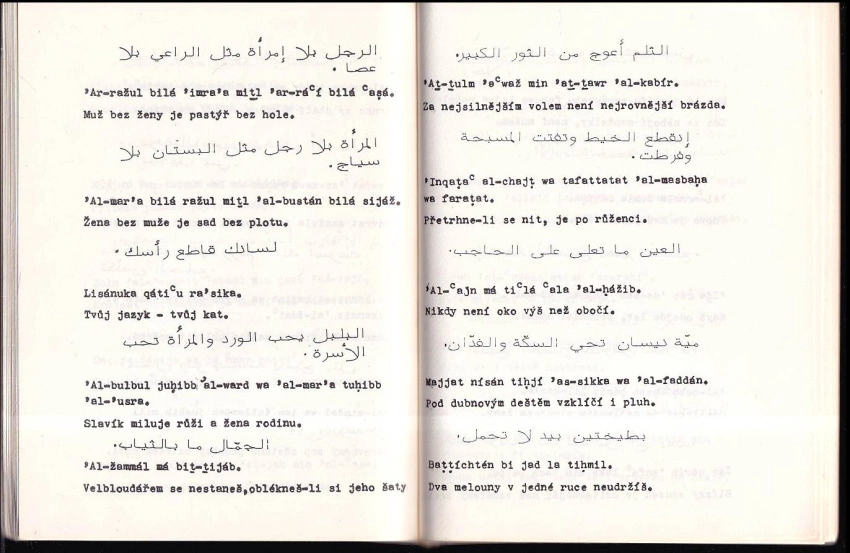 الرجل بلا إمرأة مثل الراعي بلا
عصا.
’Ar-ražul bilá ’imra’a mitl ’ar-ráᶜí bilá ᶜaṣá.
Muž bez ženy je pastýř bez hole.
المرأة بلا رجل مثل البستان بلا
سياج.
’Al-mar’a bilá ražul mitl ’al-bustán bilá sijáž.
Žena bez muže je sad bez plotu.
لسانك قاطع رأسك.
Lisánuka qátiᶜu ra’sika.
Tvůj jazyk - tvůj kat.
البلبل يحب الورد والمرأة تحب
الأسرة.
’Al-bulbul juḥibb ’al-ward wa ’al-mar’a tuḥibb
’al-’usra.
Slavík miluje růži a žena rodinu.
الجمّال ما بالثياب.
’Al-žammál má biṯ-ṯijáb.
Velbloudářem se nestaneš,oblékneš-li si jeho šaty
الثلم أعوج من الثور الكبير.
’Aṯ-ṯulm ’aᶜwaž min ’aṯ-ṯawr ’al-kabír.
Za nejsilnějším volem není nejrovnější brázda.
إنقطع الخيط وتفتت المسبحة
وفرطت.
’Inqaṭaᶜ al-chajṭ wa tafattatat ’al-masbaḥa
wa faraṭat.
Přetrhne-li se nit, je po růženci.
العين ما تعلى على الحاجب.
’Al-ᶜajn má tiᶜlá ᶜala ’al-ḥážib.
Nikdy není oko výš než obočí.
ميّة نيسان تحي السكّة والفدّان.
Majjat nísán tiḥjí ’as-sikka wa ’al-faddán.
Pod dubnovým deštěm vzklíčí i pluh.
بطيختين بيد لا تحمل.
Baṭṭíchtén bi jad la tiḥmil.
Dva melouny v jedné ruce neudržíš.